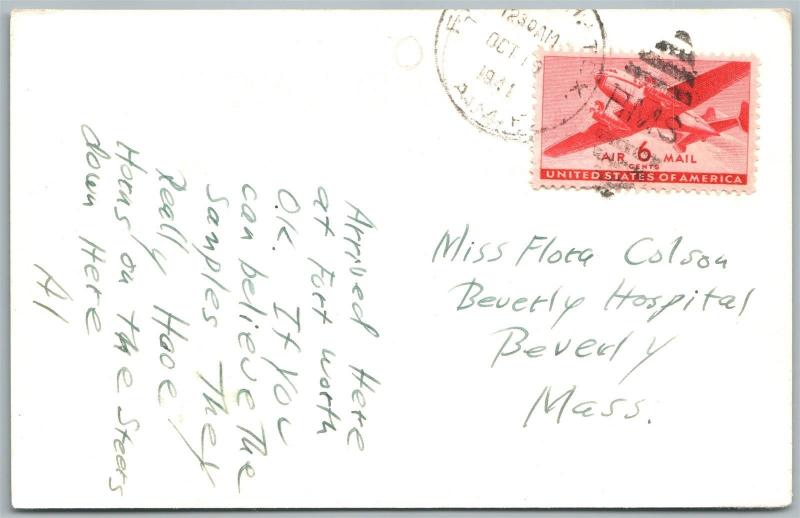 1230AM
OCT 15
1941
RMS
6
AIR MAIL
CENTS
UNITED STATES OF AMERICA
Arrived Here
at Fort worth
O.K. If You
can believe The
Samples They
Really Have
Horns on the Steers
down Here
Al
Miss Flora Colson
Beverly Hospital
Beverly
Mass.